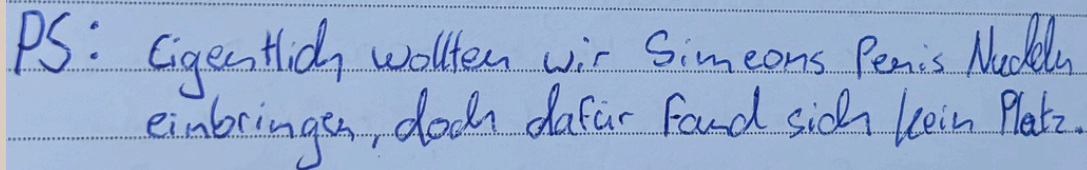 PS: Eigentlich wollten wir Simeons Penis Nudeln
einbringen, doch dafür fand sich kein Platz.